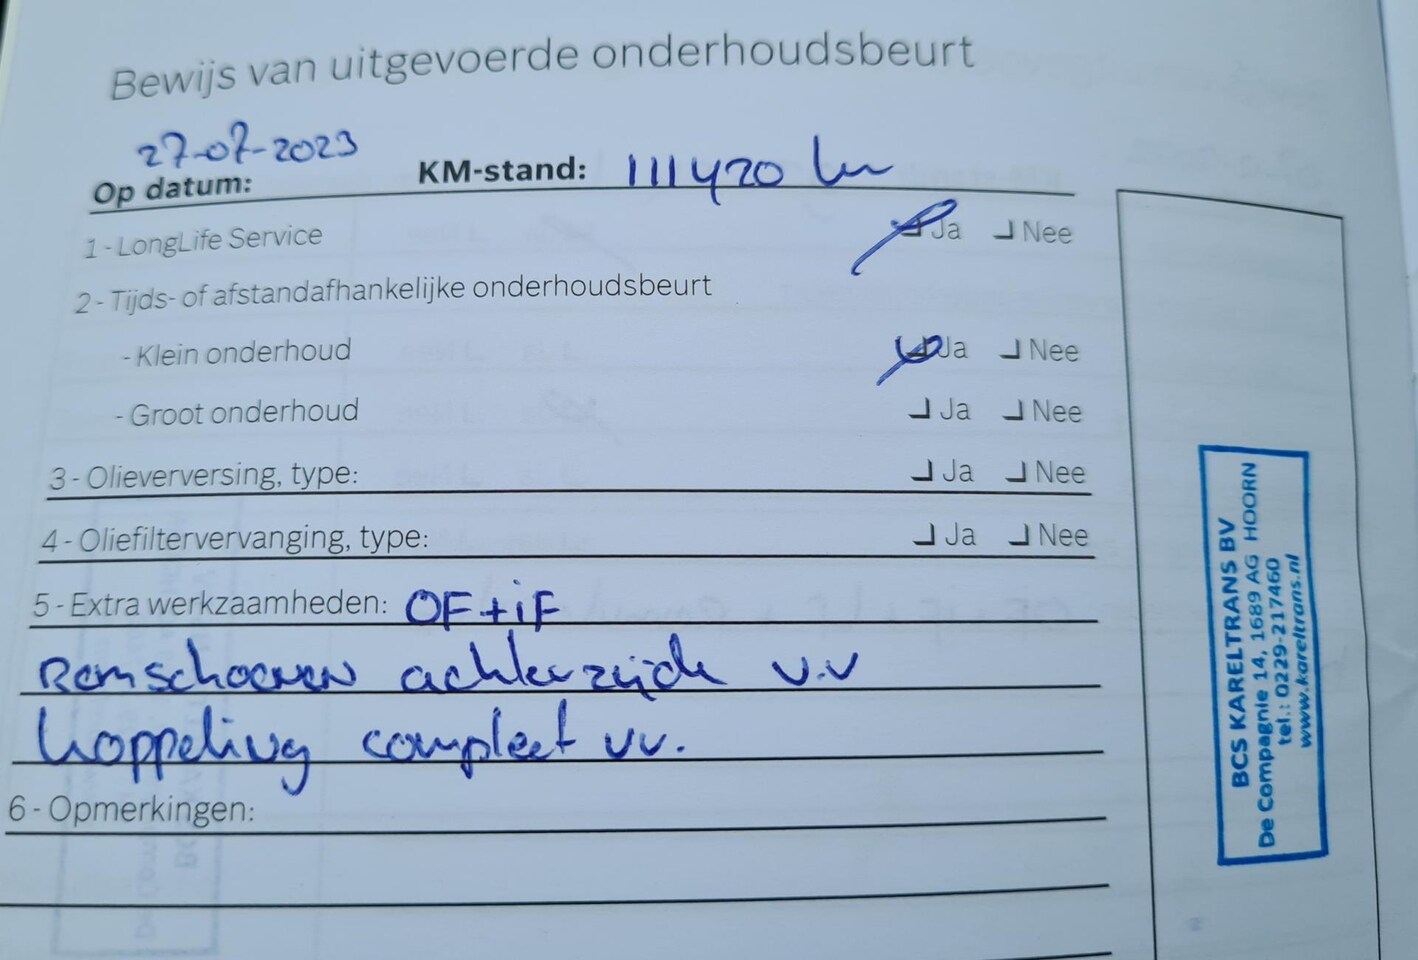 Bewijs van uitgevoerde onderhoudsbeurt
27-07-2023
Op datum: KM-stand: 111420 km
1 - LongLife Service Ja Nee
2 - Tijds- of afstandafhankelijke onderhoudsbeurt
- Klein onderhoud Ja Nee
- Groot onderhoud Ja Nee
3 - Olieverversing, type: Ja Nee
4 - Oliefiltervervanging, type: Ja Nee
5 - Extra werkzaamheden: OF+iF
Remschoenen achterzijde v.v
koppeling compleet vv.
6 - Opmerkingen:
BCS KARELTRANS BV
De Compagnie 14, 1689 AG HOORN
tel.: 0229-217460
www.kareltrans.nl